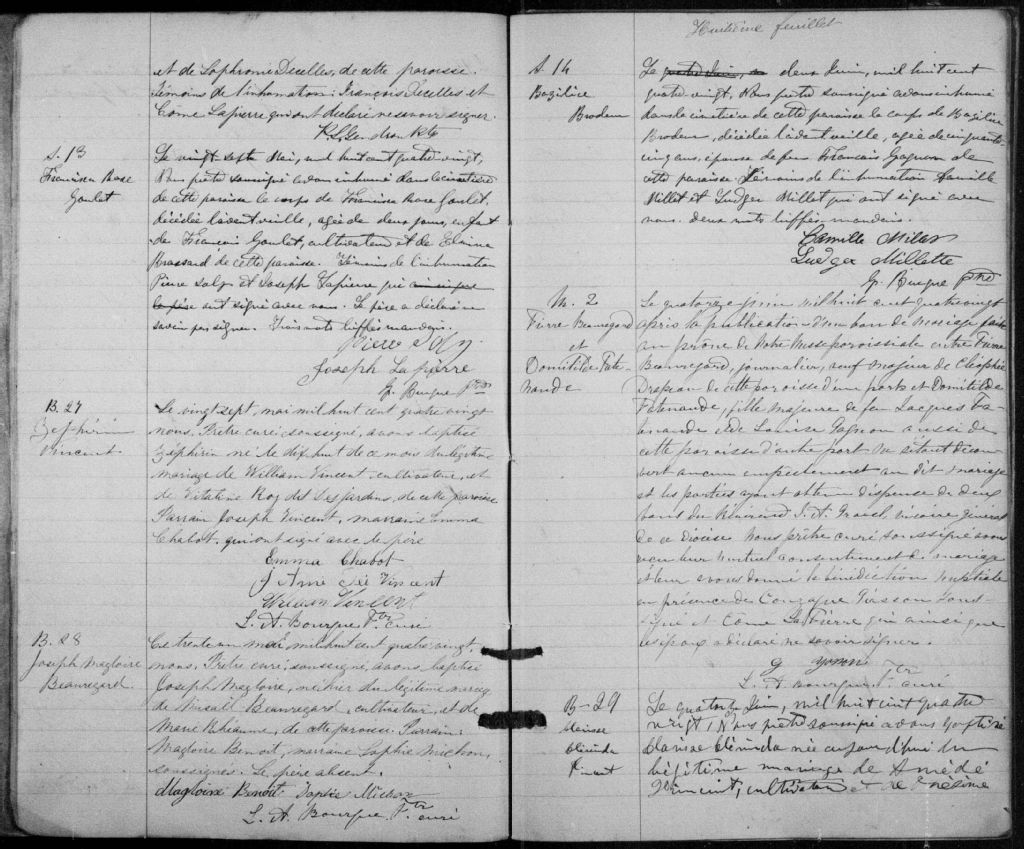 et de Sophronie Decelles, de cette paroisse.
Témoins de l'inhumation: François Decelles et
Côme Lapierre qui ont déclaré ne savoir signer.
S. 13
Francisca Rose
Goulet
Le vingt sept Mai, mil huit cent quatre vingt,
Nous prêtre soussigné avons inhumé dans le cimetière
de cette paroisse le corps de Francisca Rose Goulet,
décédée l'avant veille, agée de deux jours, enfant
de François Goulet, cultivateur et de
Brassard de cette paroisse. Témoins de l'inhumation
Pierre Saly et Joseph Lapierre qui
ont signé avec nous. Le père a déclaré ne
savoir pas signer. Trois mots biffés mauvais.
Joseph Lapierre
B. 27
Zephirin
Vincent
Le vingt sept, mai mil huit cent quatre vingt
nous, Prêtre curé soussigné, avons baptisé
Zéphirin né le dix huit de ce mois du légitime
mariage de William Vincent cultivateur, et
de Vitaline Roy dit Desjardins, de cette paroisse
Parrain Joseph Vincent, marraine Emma
Chabot, qui ont signé avec le père
Emma Chabot
Vincent
William Vincent
L. A. Bourque Ptr curé
B. 28
Joseph Magloire
Beauregard
Ce trente un mai mil huit cent quatre vingt,
nous, Prêtre curé soussigné, avons baptisé
Joseph Magloire, né hier du légitime mariage
de Misaël Beauregard, cultivateur, et de
Marie Rhéaume, de cette paroisse. Parrain
Magloire Benoit, marraine Sophie Michon,
soussignés. Le père absent.
Magloire Benoit, Sophie Michon
L. A. Bourque Ptr curé
Huitième feuillet
S. 14
Bazilice
Brodeur
Le deux Juin, mil huit cent
quatre vingt, Nous prêtre soussigné avons inhumé
dans le cimetière de cette paroisse le corps de Bazilice
Brodeur, décédée l'avant veille, agée de cinquante
cinq ans, épouse de feu Francois Gagnon de
cette paroisse Témoins de l'inhumation Camille
Millet et Ludger Millet qui ont signé avec
nous. deux mots biffés mauvais.
Camille
Ludger Millette
M. 2
Pierre Beauregard
et
Domitilde
Le quatorze juin mil huit cent quatre vingt
après la publication d'un ban de mariage faite
au prône de Notre Messe paroissiale entre Pierre
Beauregard, journalier, veuf majeur de Cléophie
Drapeau de cette paroisse d'une part et Domitilde
fille majeure de feu Jacques
et de Louise Gagnon aussi de
cette paroisse d'autre part Ne s'étant découvert
aucun empêchement au dit mariage
et les parties ayant obtenu dispense de deux
bans du Révérend vicaire général
de ce diocèse Nous prêtre curé soussigné avons
reçu leur mutuel consentement de mariage
et leur avons donné la bénédiction nuptiale
en présence de
et Come Lapierre qui ainsi que
l'époux a déclaré ne savoir signer.
L. A. Bourque Ptr curé
B-29
Clarisse
Clérinda
Vincent
Le quatorze Juin, mil huit cent quatre
vingt, Nous prêtre soussigné avons baptisé
Clarisse Clérinda née aujourd'hui du
légitime mariage de Amédé
Vincent, cultivateur et de Onésime